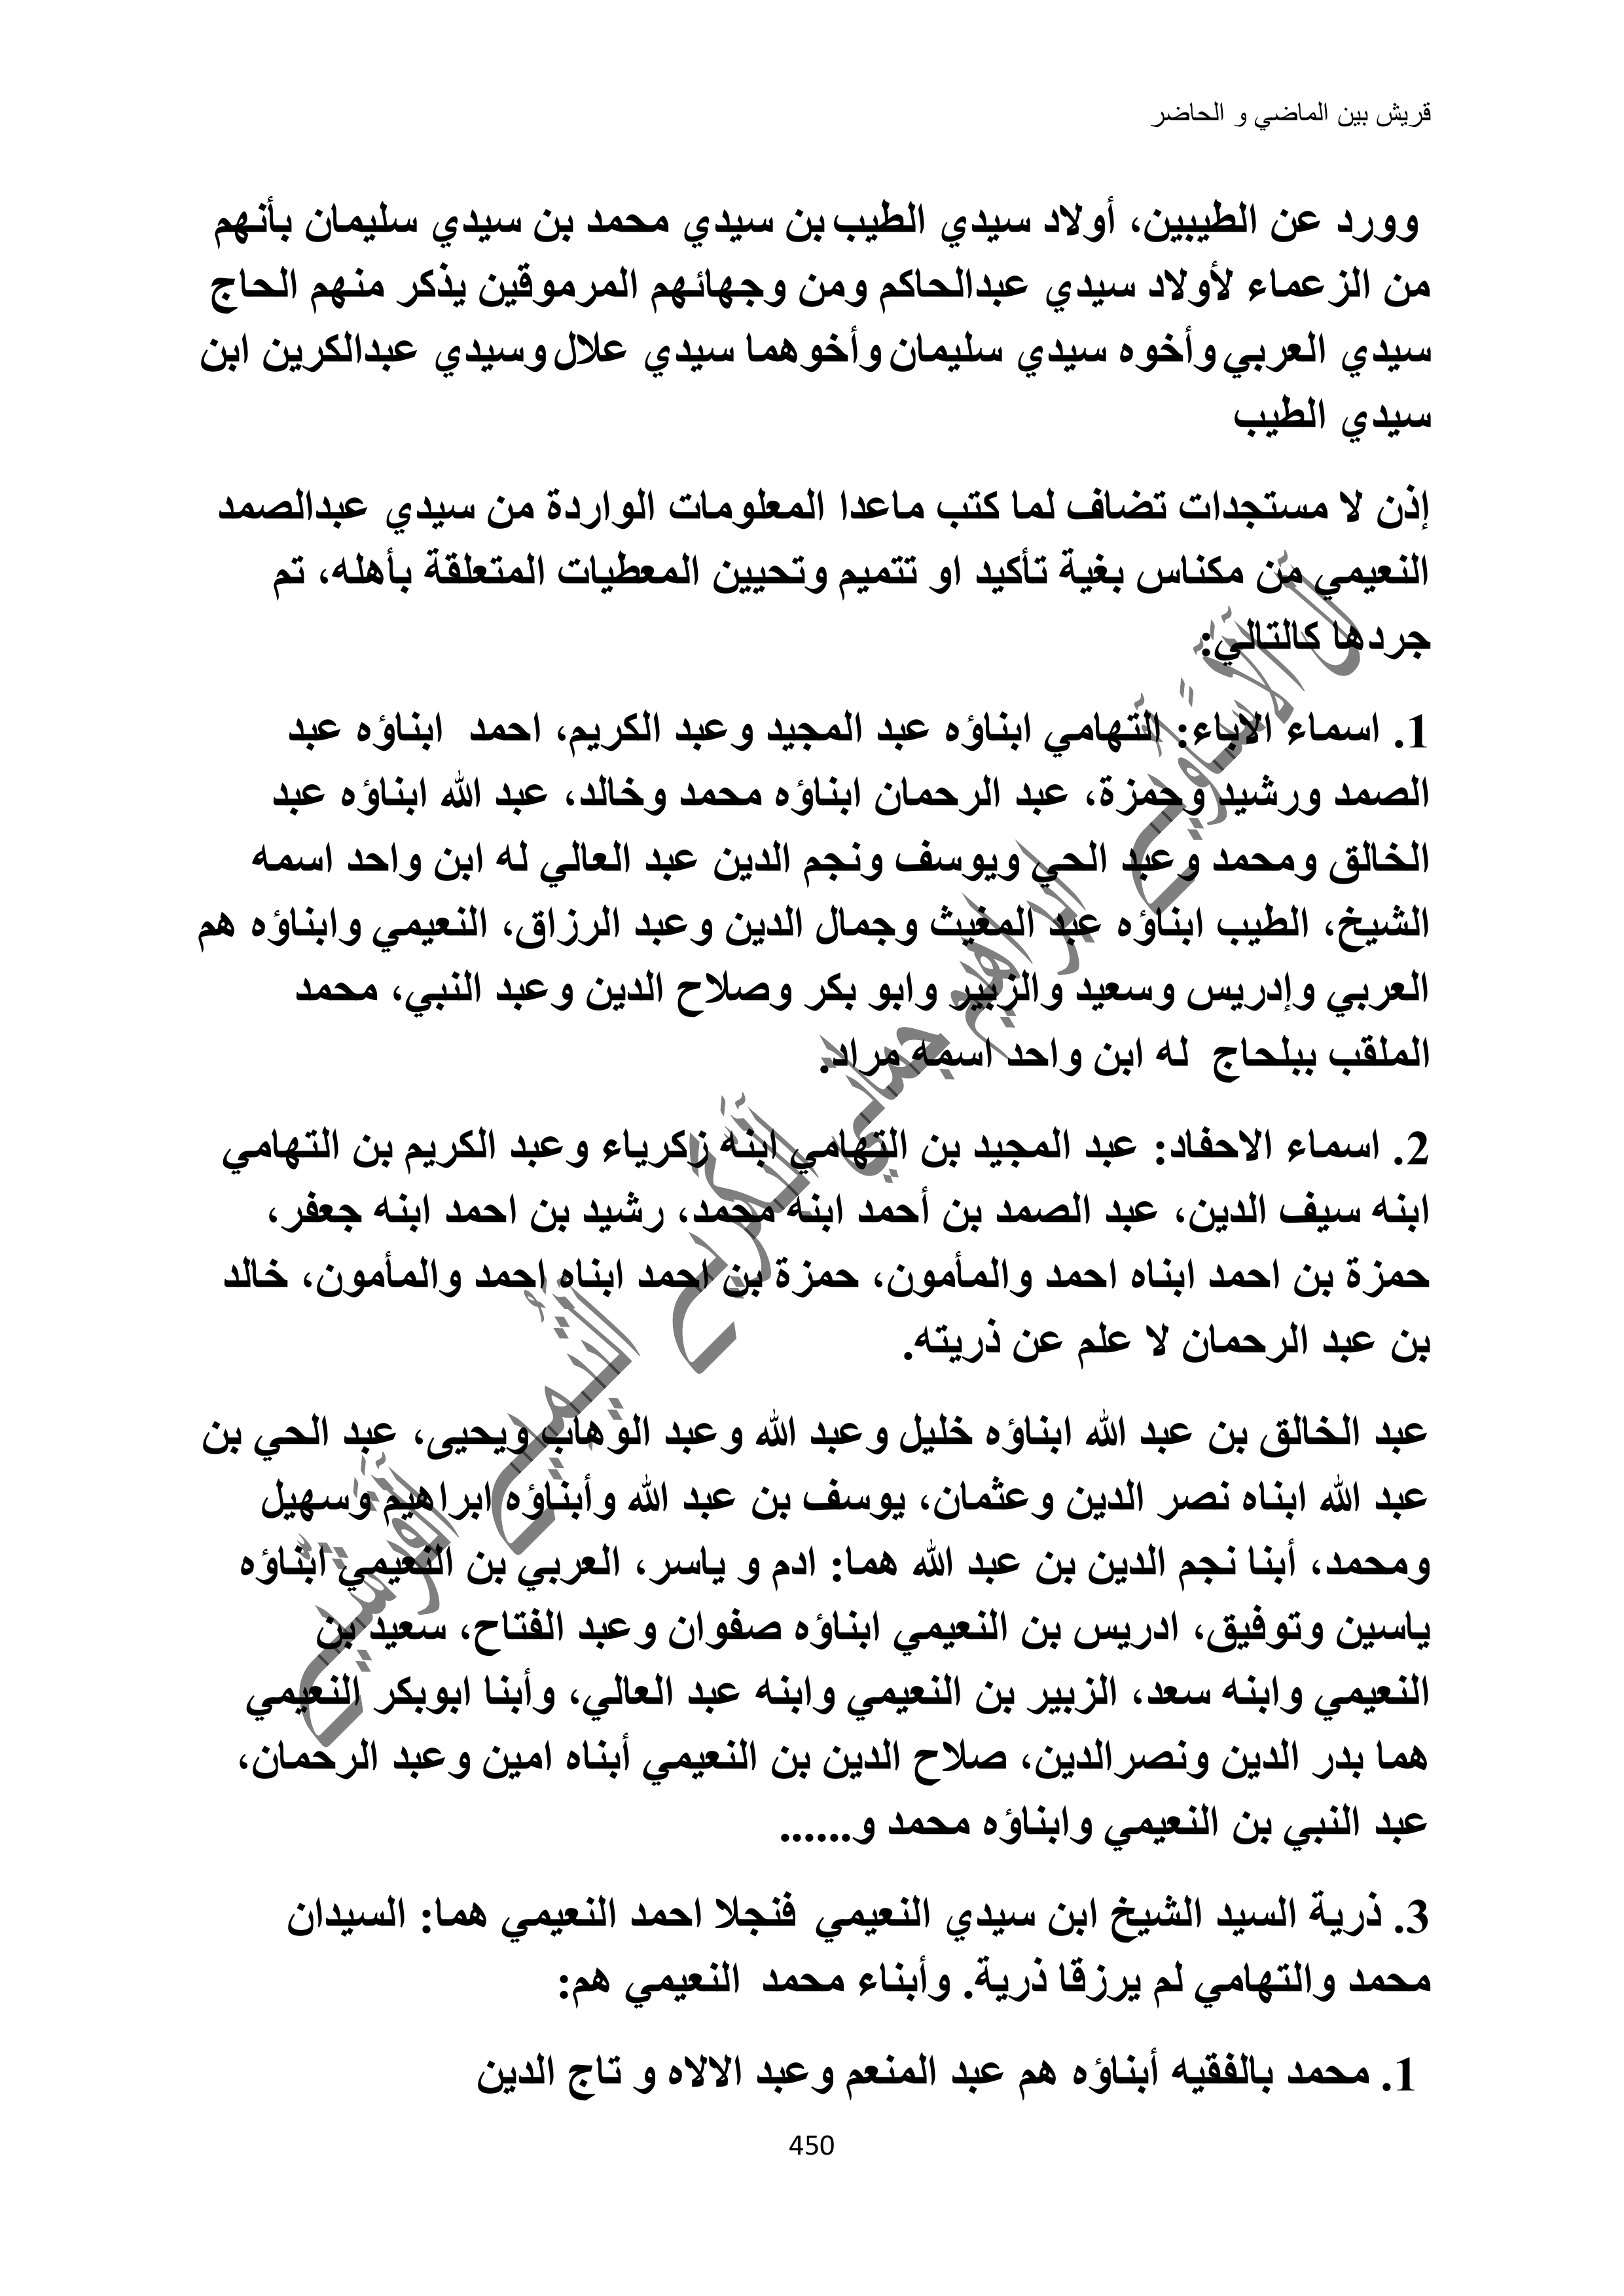 قريش بين الماضي و الحاضر
وورد عن الطيبين، أولاد سيدي الطيب بن سيدي محمد بن سيدي سليمان بأنهم
من الزعماء لأولاد سيدي عبدالحاكم ومن وجهائهم المرموقين يذكر منهم الحاج
سيدي العربي وأخوه سيدي سليمان وأخوهما سيدي علال وسيدي عبدالكرين ابن
سيدي الطيب
إذن لا مستجدات تضاف لما كتب ماعدا المعلومات الواردة من سيدي عبدالصمد
النعيمي من مكناس بغية تأكيد او تتميم وتحيين المعطيات المتعلقة بأهله، تم
جردها كالتالي:
1. اسماء الاباء: التهامي ابناؤه عبد المجيد وعبد الكريم، احمد ابناؤه عبد
الصمد ورشيد وحمزة، عبد الرحمان ابناؤه محمد وخالد، عبد الله ابناؤه عبد
الخالق ومحمد وعبد الحي ويوسف ونجم الدين عبد العالي له ابن واحد اسمه
الشيخ، الطيب ابناؤه عبد المغيث وجمال الدين وعبد الرزاق، النعيمي وابناؤه هم
العربي وإدريس وسعيد والزبير وابو بكر وصلاح الدين وعبد النبي، محمد
الملقب ببلحاج له ابن واحد اسمه مراد.
2. اسماء الاحفاد: عبد المجيد بن التهامي ابنه زكرياء وعبد الكريم بن التهامي
ابنه سيف الدين، عبد الصمد بن أحمد ابنه محمد، رشيد بن احمد ابنه جعفر،
حمزة بن احمد ابناه احمد والمأمون، حمزة بن احمد ابناه احمد والمأمون، خالد
بن عبد الرحمان لا علم عن ذريته.
عبد الخالق بن عبد الله ابناؤه خليل وعبد الله وعبد الوهاب ويحيى، عبد الحي بن
عبد الله ابناه نصر الدين وعثمان، يوسف بن عبد الله وأبناؤه ابراهيم وسهيل
ومحمد، أبنا نجم الدين بن عبد الله هما: ادم و ياسر، العربي بن النعيمي ابناؤه
ياسين وتوفيق، ادريس بن النعيمي ابناؤه صفوان وعبد الفتاح، سعيد بن
النعيمي وابنه سعد، الزبير بن النعيمي وابنه عبد العالي، وأبنا ابوبكر النعيمي
هما بدر الدين ونصرالدين، صلاح الدين بن النعيمي أبناه امين وعبد الرحمان،
عبد النبي بن النعيمي وابناؤه محمد و......
3. ذرية السيد الشيخ ابن سيدي النعيمي فنجلا احمد النعيمي هما: السيدان
محمد والتهامي لم يرزقا ذرية. وأبناء محمد النعيمي هم:
1. محمد بالفقيه أبناؤه هم عبد المنعم وعبد الالاه و تاج الدين
450